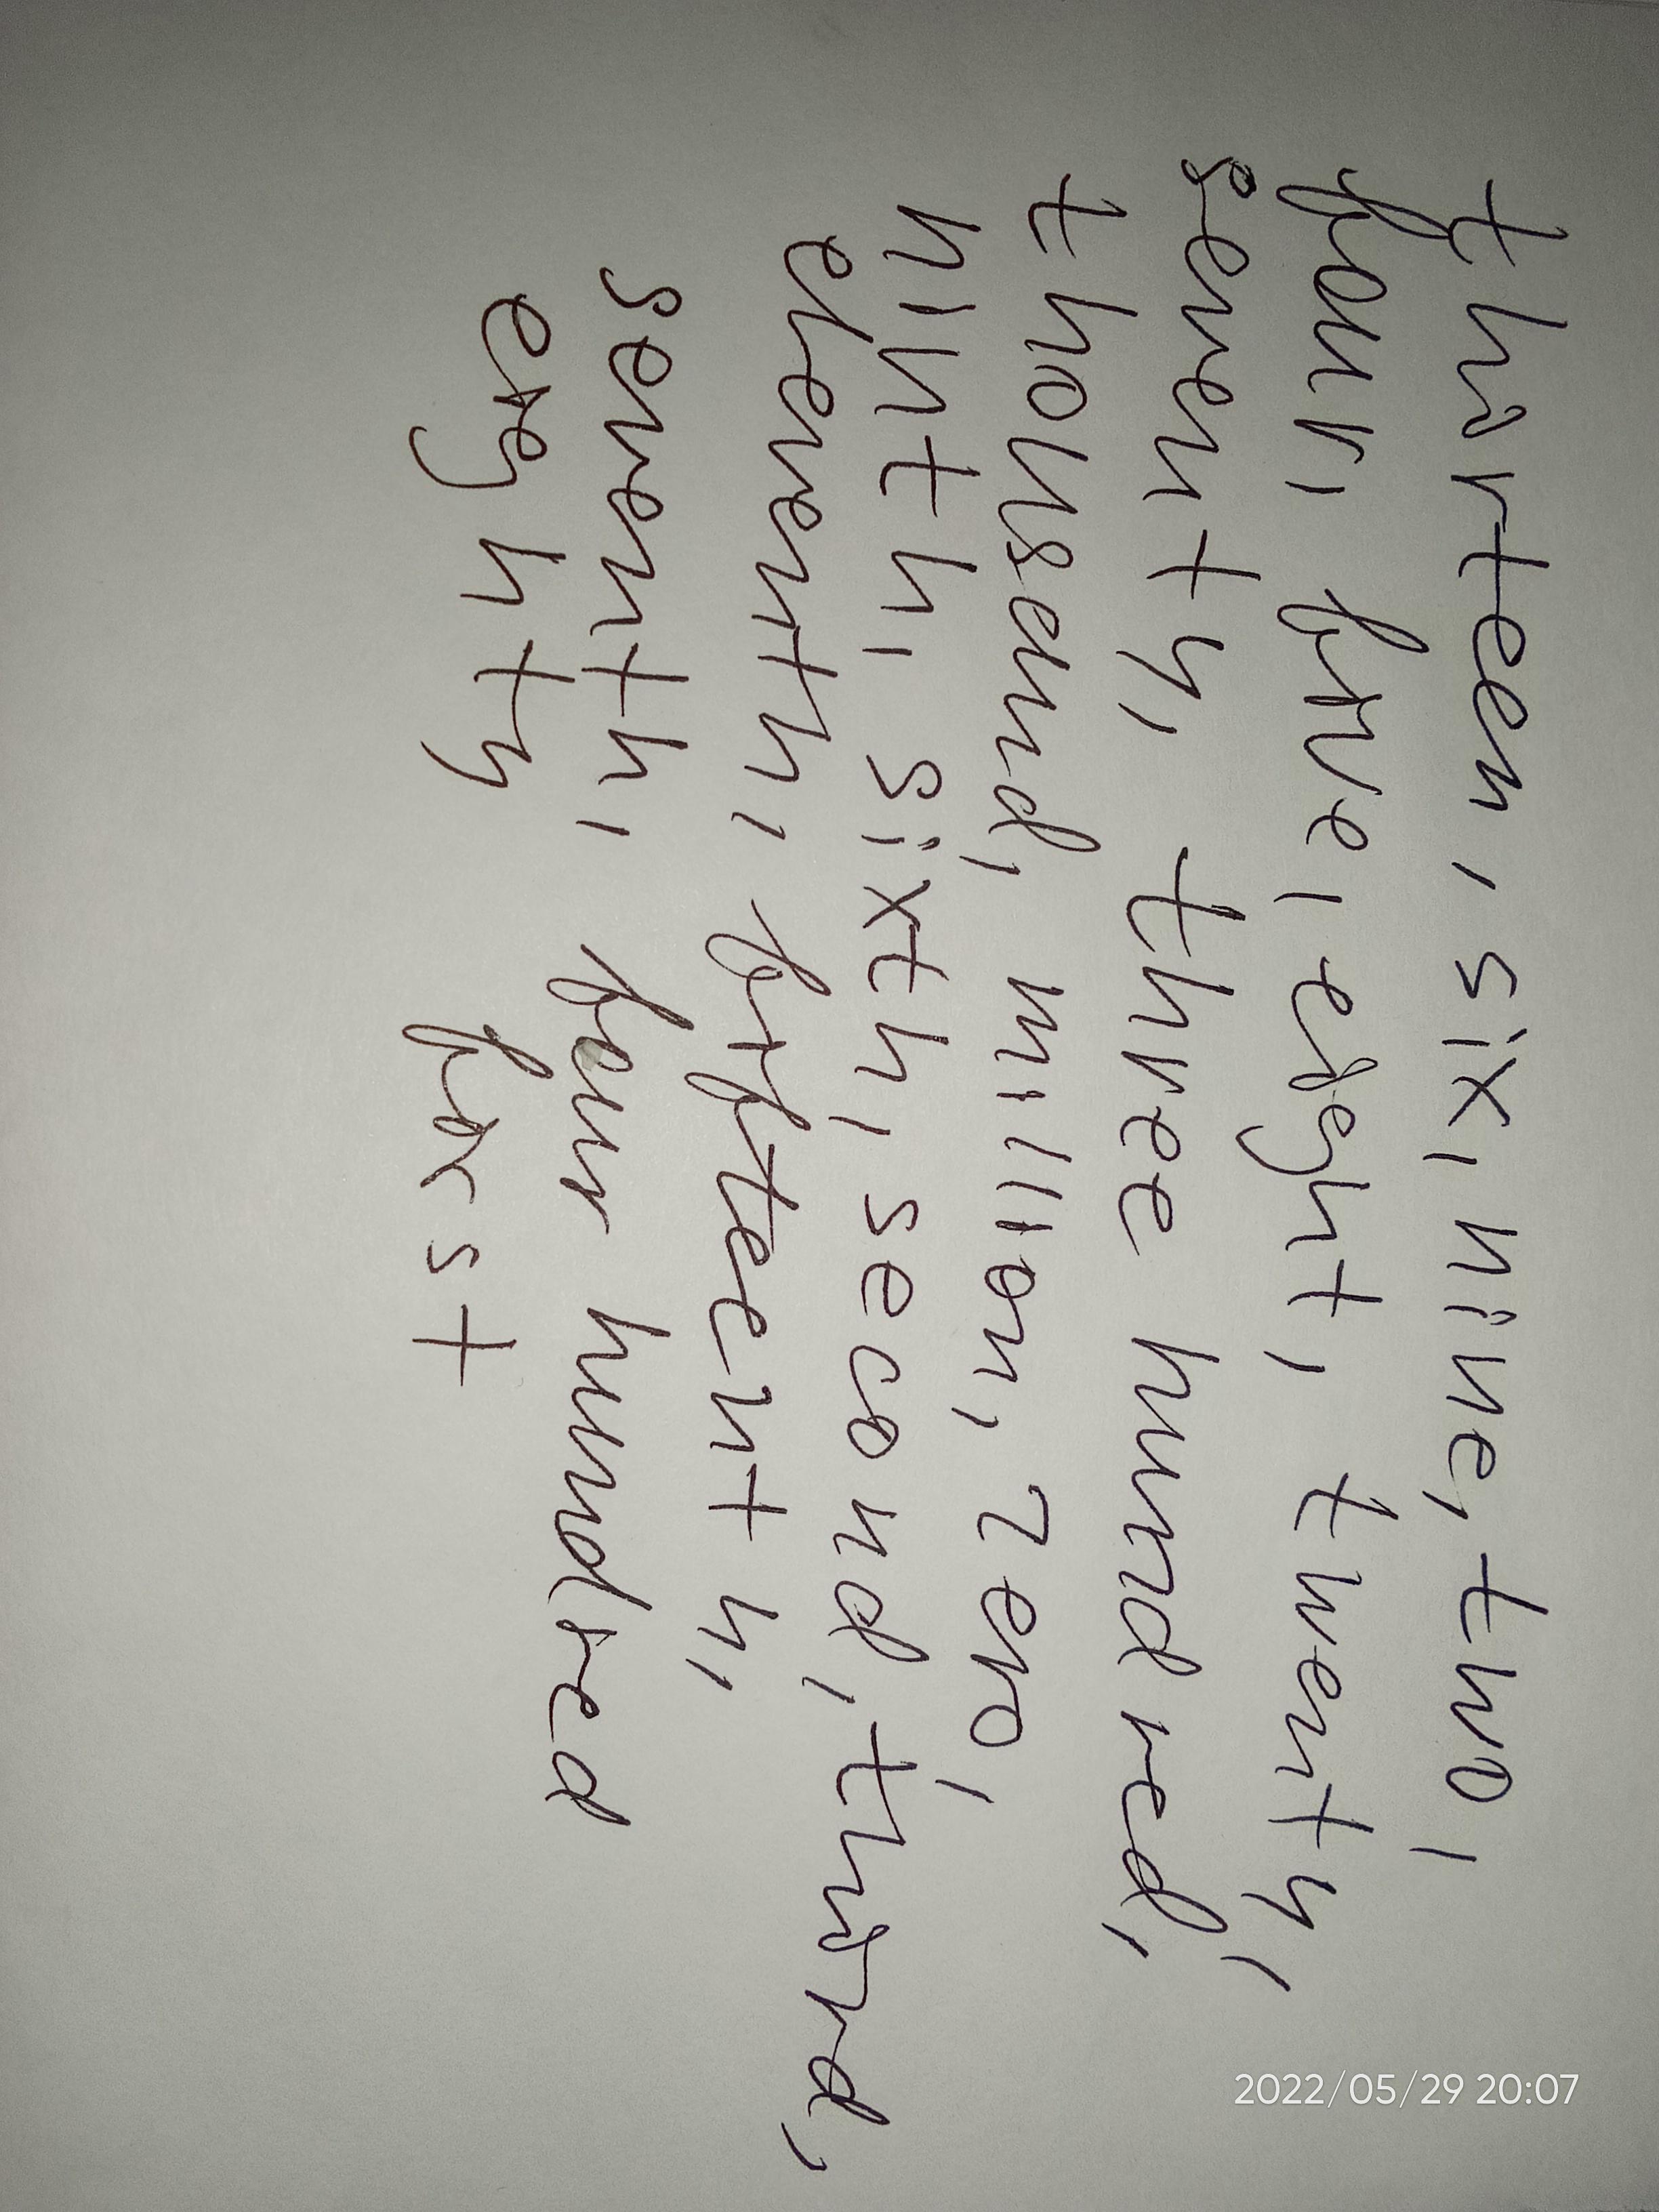 thirteen, six, nine, two,
four, five, eight, twenty,
seventy, three hundred,
thousend, million, zero,
ninth, sixth, second, third,
eleventh, fifteenth,
seventh, four hundred
eighty first
2022/05/29 20:07